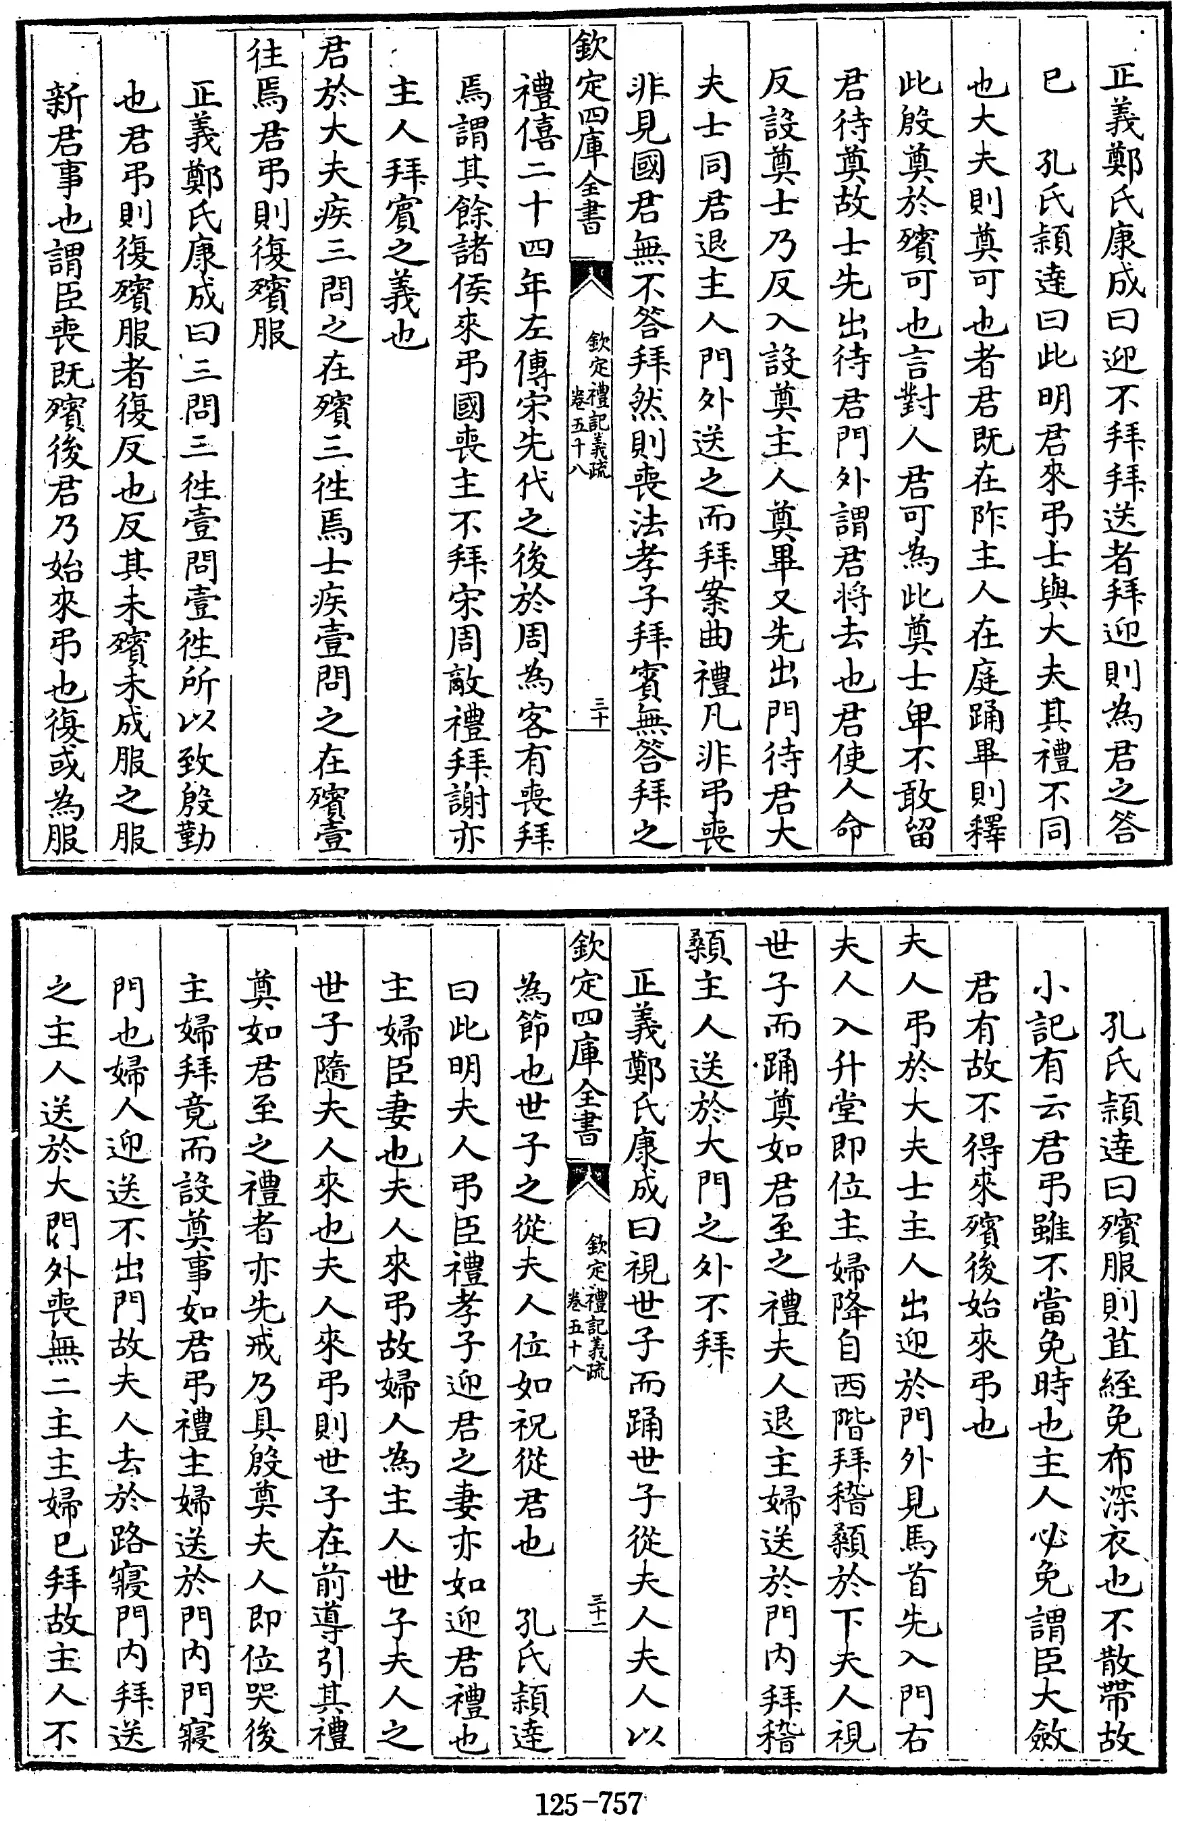 正義鄭氏康成曰迎不拜拜送者拜迎則為君之答
已　孔氏穎達曰此明君來弔士與大夫其禮不同
也大夫則奠可也者君既在阼主人在庭踊畢則釋
此殷奠於殯可也言對人君可為此奠士卑不敢留
君待奠故士先出待君門外謂君將去也君使人命
反設奠士乃反入設奠主人奠畢又先出門待君大
夫士同君退主人門外送之而拜案曲禮凡非弔喪
非見國君無不答拜然則喪法孝子拜賓無答拜之
欽定四庫全書
欽定禮記義疏
卷五十八
三十
禮僖二十四年左傳宋先代之後於周為客有喪拜
焉謂其餘諸侯來弔國喪主不拜宋周敵禮拜謝亦
主人拜賓之義也
君於大夫疾三問之在殯三徃焉士疾壹問之在殯壹
徃焉君弔則復殯服
正義鄭氏康成曰三問三徃壹問壹徃所以致殷勤
也君弔則復殯服者復反也反其未殯未成服之服
新君事也謂臣喪既殯後君乃始來弔也復或為服
孔氏穎達曰殯服則苴絰免布深衣也不散帶故
小記有云君弔雖不當免時也主人必免謂臣大斂
君有故不得來殯後始來弔也
夫人弔於大夫士主人出迎於門外見馬首先入門右
夫人入升堂即位主婦降自西階拜稽顙於下夫人視
世子而踊奠如君至之禮夫人退主婦送於門內拜稽
顙主人送於大門之外不拜
正義鄭氏康成曰視世子而踊世子從夫人夫人以
欽定四庫全書
欽定禮記義疏
卷五十八
三十一
為節也世子之從夫人位如祝從君也　孔氏穎達
曰此明夫人弔臣禮孝子迎君之妻亦如迎君禮也
主婦臣妻也夫人來弔故婦人為主人世子夫人之
世子隨夫人來也夫人來弔則世子在前導引其禮
奠如君至之禮者亦先戒乃具殷奠夫人即位哭後
主婦拜竟而設奠事如君弔禮主婦送於門內門寢
門也婦人迎送不出門故夫人去於路寢門內拜送
之主人送於大門外喪無二主主婦已拜故主人不
125-757